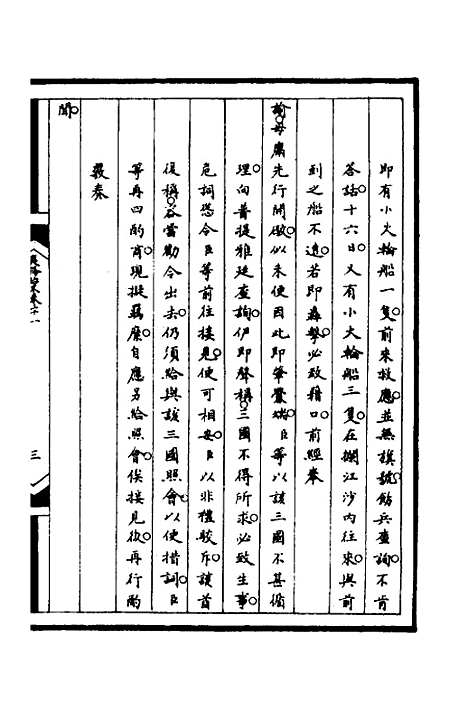 即有小火輪船一隻前來救應並無旗號飭兵查詢不肯
答話十六日又有小火輪船三隻在攔江沙內往來與前
到之船不遠若即轟擊必致藉口前經奉
諭毋庸先行開礮似未便因此即肇釁端臣等以該三國不甚循
理向普提雅廷查詢伊即聲稱三國不得所求必致生事
危詞恐令臣等前往接見便可相安臣以非禮駁斥該酋
復稱咨當勸令出去仍須給與該三國照會以便措詞臣
等再四酌商現擬羈縻自應另給照會俟接見後再行酌
覈奏
聞
三